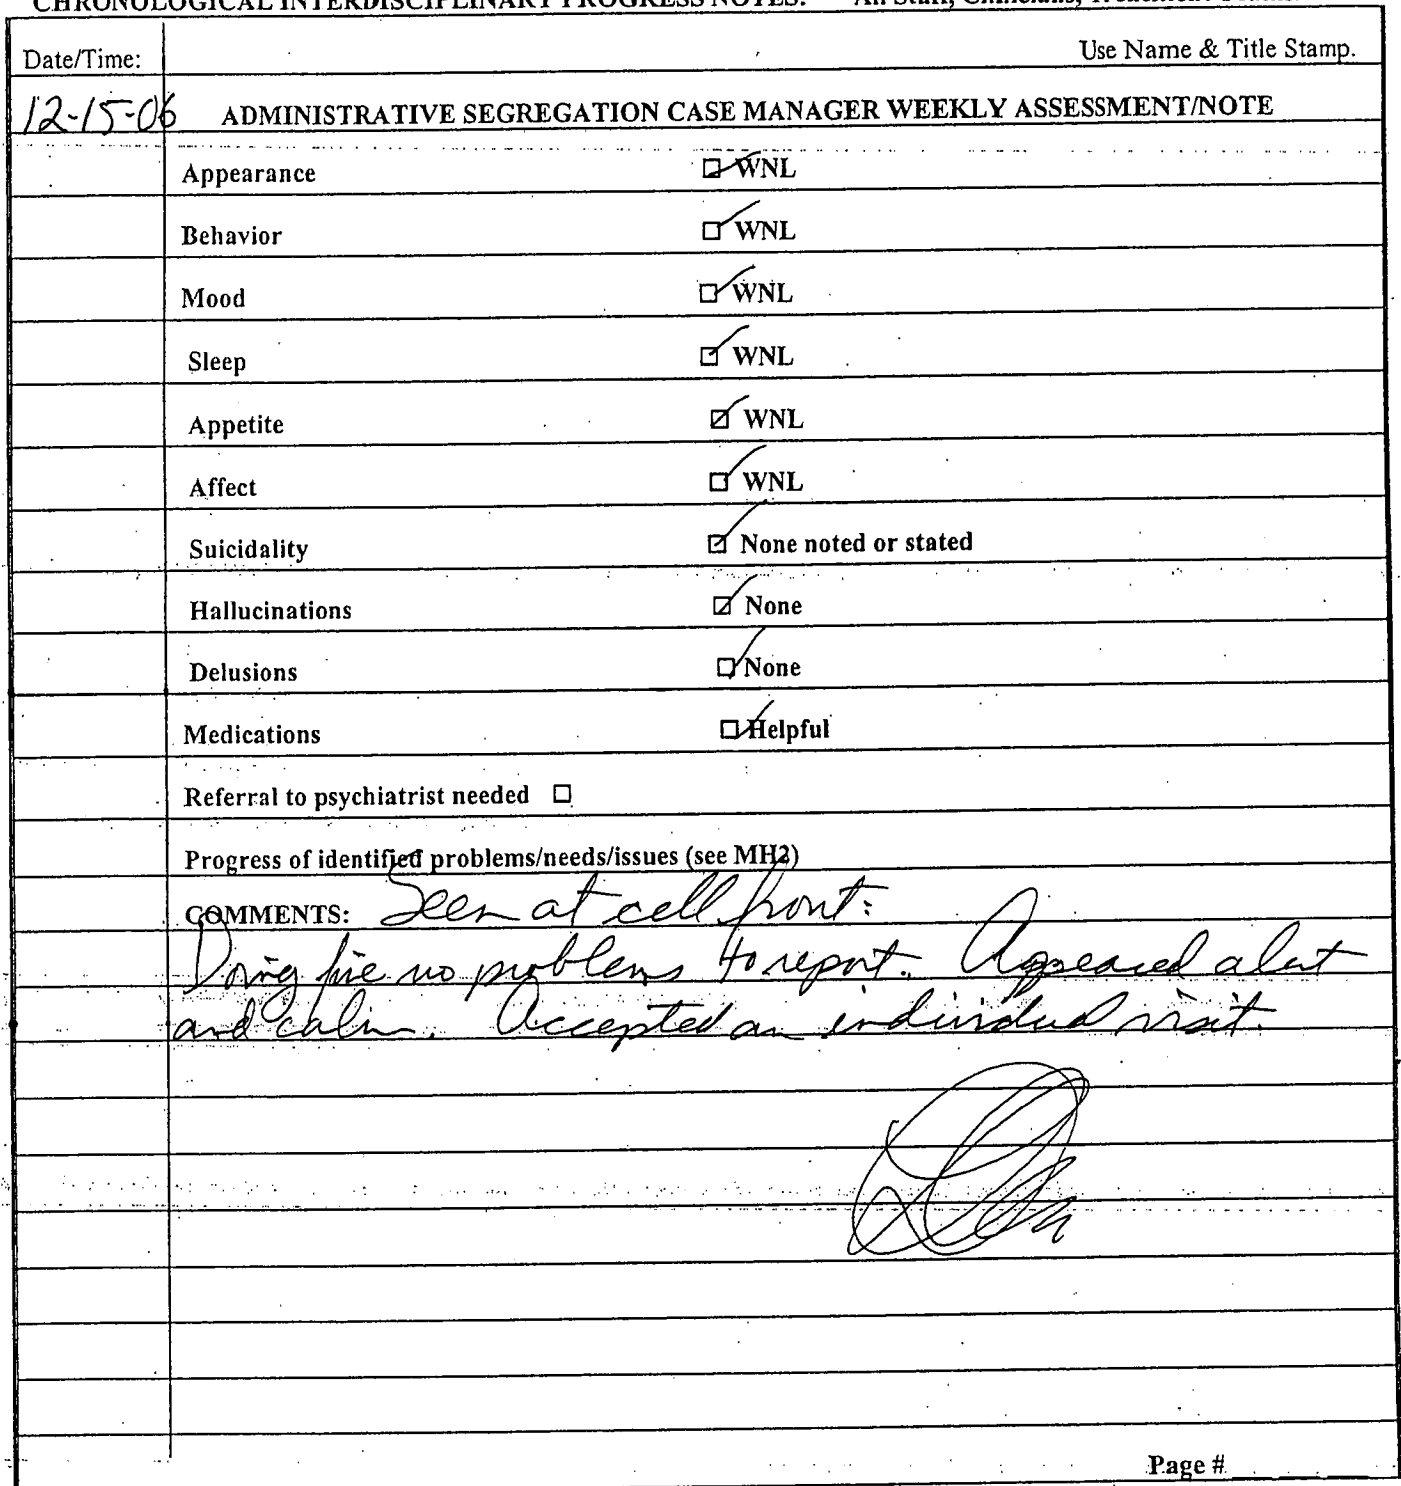 CHRONOLOGICAL INTERDISCIPLINARY PROGRESS NOTES: All Staff, Clinicians, Treatment
Date/Time: Use Name & Title Stamp.
12-15-06 ADMINISTRATIVE SEGREGATION CASE MANAGER WEEKLY ASSESSMENT/NOTE
Appearance ☑ WNL
Behavior ☑ WNL
Mood ☑ WNL
Sleep ☑ WNL
Appetite ☑ WNL
Affect ☑ WNL
Suicidality ☑ None noted or stated
Hallucinations ☑ None
Delusions ☑ None
Medications ☑ Helpful
Referral to psychiatrist needed ☐
Progress of identified problems/needs/issues (see MH2)
COMMENTS: Seen at cell front:
Doing fine no problems to report. Appeared alert
and calm. Accepted an individual visit.
Page #